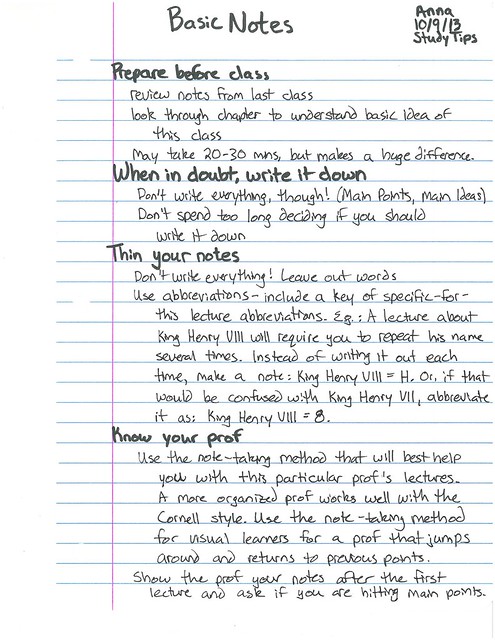 Basic Notes
Anna
10/9/13
Study Tips
Prepare before class
review notes from last class
look through chapter to understand basic idea of
this class
May take 20-30 mins, but makes a huge difference.
When in doubt, write it down
Don't write everything, though! (Main Points, main Ideas)
Don't spend too long deciding if you should
write it down
Thin your notes
Don't write everything! Leave out words
Use abbreviations - include a key of specific-for-
this lecture abbreviations. E.g.: A lecture about
King Henry VIII will require you to repeat his name
several times. Instead of writing it out each
time, make a note: King Henry VIII = H. Or, if that
would be confused with King Henry VII, abbreviate
it as: King Henry VIII = 8.
Know your prof
Use the note-taking method that will best help
you with this particular prof's lectures.
A more organized prof works well with the
Cornell style. Use the note-taking method
for visual learners for a prof that jumps
around and returns to previous points.
Show the prof your notes after the first
lecture and ask if you are hitting main points.